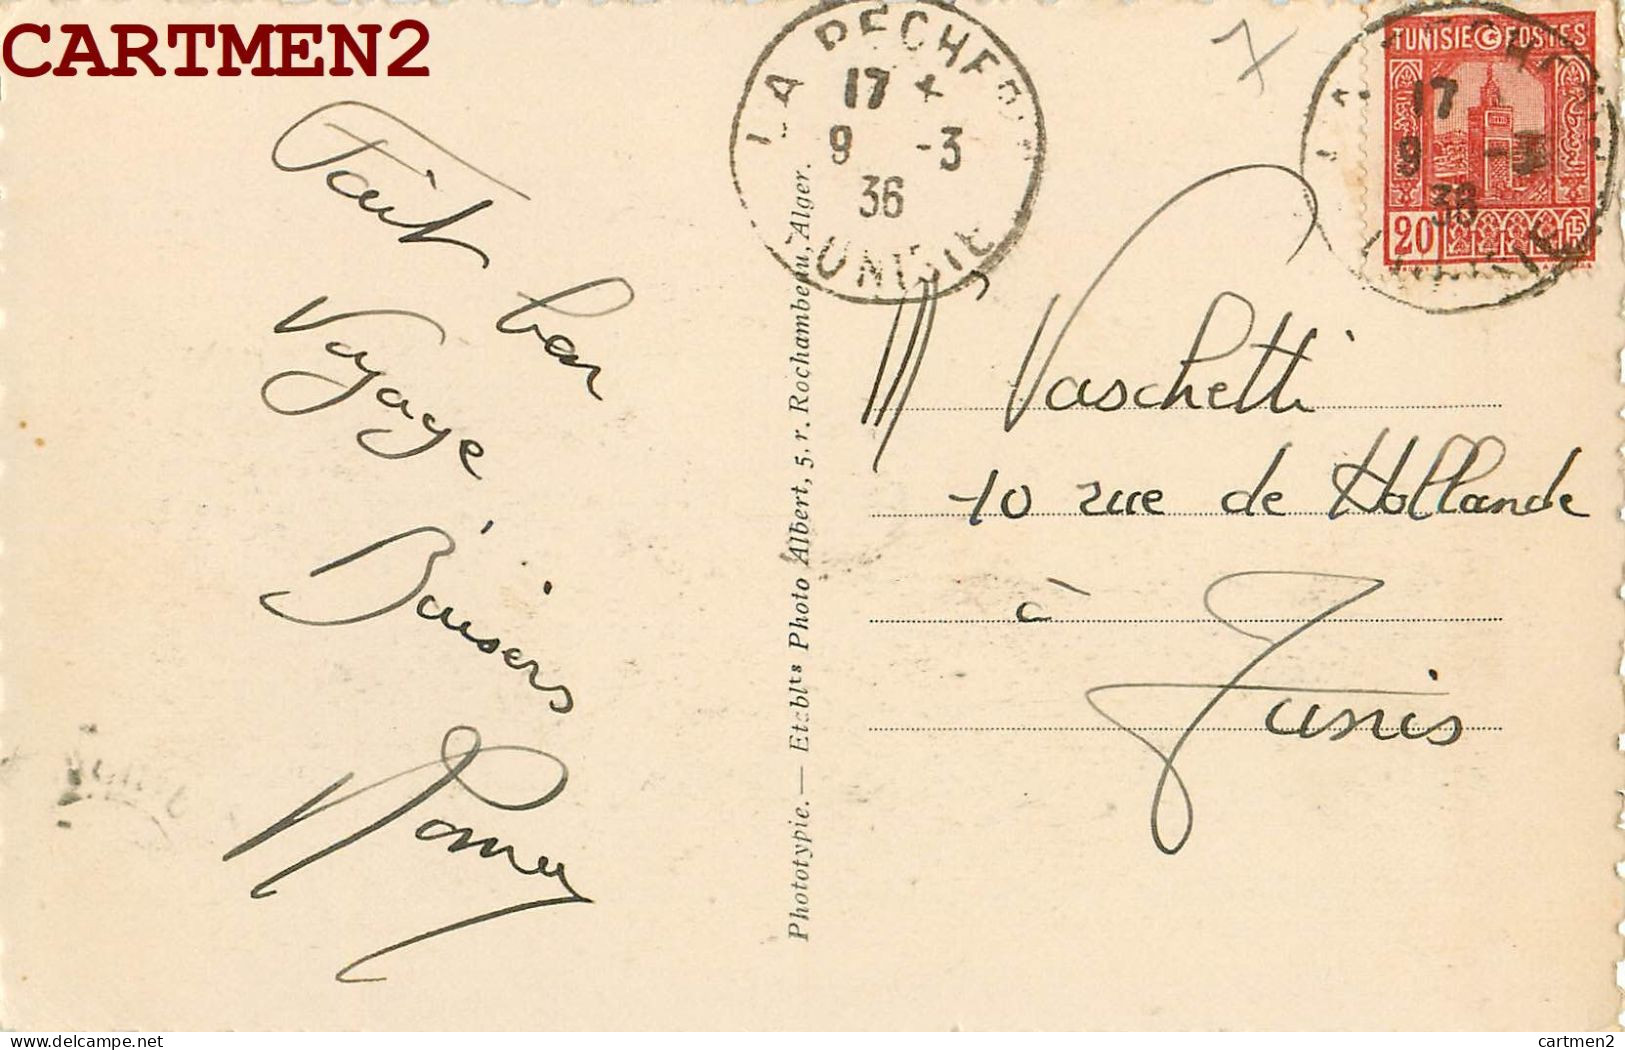 CARTMEN2
Fait bon
Voyage
Baisers
LA PÊCHERIE
17 *
9 -3
36
TUNISIE
TUNISIE POSTES
17
9 -3
36
20
Vaschetti
10 rue de Hollande
à
Tunis
Phototypie. — Etablts Photo Albert, 5, r. Rochambeau, Alger.
cartmen2